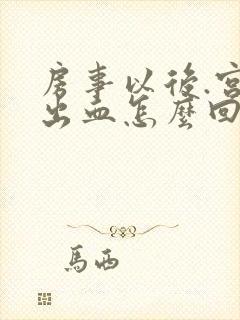 房事以後.宮
出血怎麼回
馬西